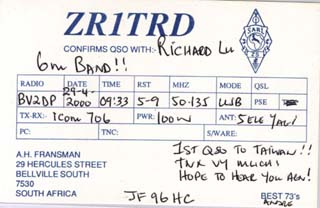 ZR1TRD
CONFIRMS QSO WITH:- RICHARD Lu
6m BAND!!
SARL
RADIO DATE TIME RST MHZ MODE QSL
BV2DP 29-4-2000 09:33 5-9 50.135 USB PSE
TX-RX:- ICOM 706 PWR: 100W ANT: 5ELE YAGI
PC: TNC: S/WARE:
A.H. FRANSMAN
29 HERCULES STREET
BELLVILLE SOUTH
7530
SOUTH AFRICA
1ST QSO TO TAIWAN!!
TNX VY MUCH!
HOPE TO HEAR YOU AGN!
JF96HC
BEST 73's
ANDRE